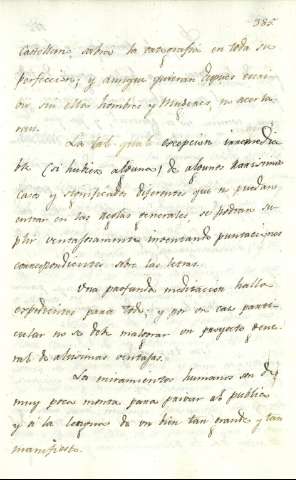 385
Castellana, sabrá la ortografía en toda su
perfeccion; y aunque quieran despues escri
bir sin ella hombres y Mugeres, no acerta
ran.
La tal qual excepcion irremedia
ble (si hubiera alguna) de algunos rarisimos
casos y significados diferentes que no puedan
entrar en las Reglas generales, se podran su
plir ventajosamente inventando puntaciones
correspondientes sobre las letras.
Una profunda meditacion halla
expedientes para todo; y por un caso parti
cular no se debe malograr un proyecto gene
ral de altisimas ventajas.
Los miramientos humanos son de
muy poca monta para privar al publico
y á la lengua de un bien tan grande y tan
manifiesto.